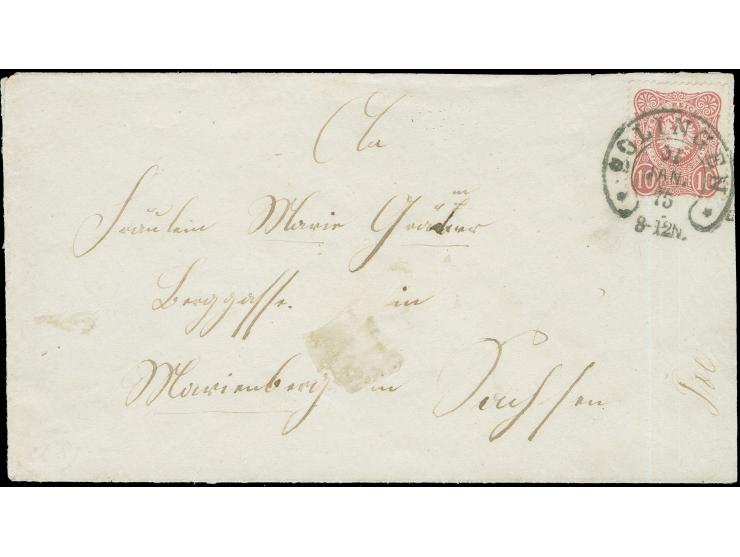 SOLINGEN
31
JAN.
75
8-12N.
10 10
An
Fräulein Marie
Berggasse. in
Marienberg in Sachsen